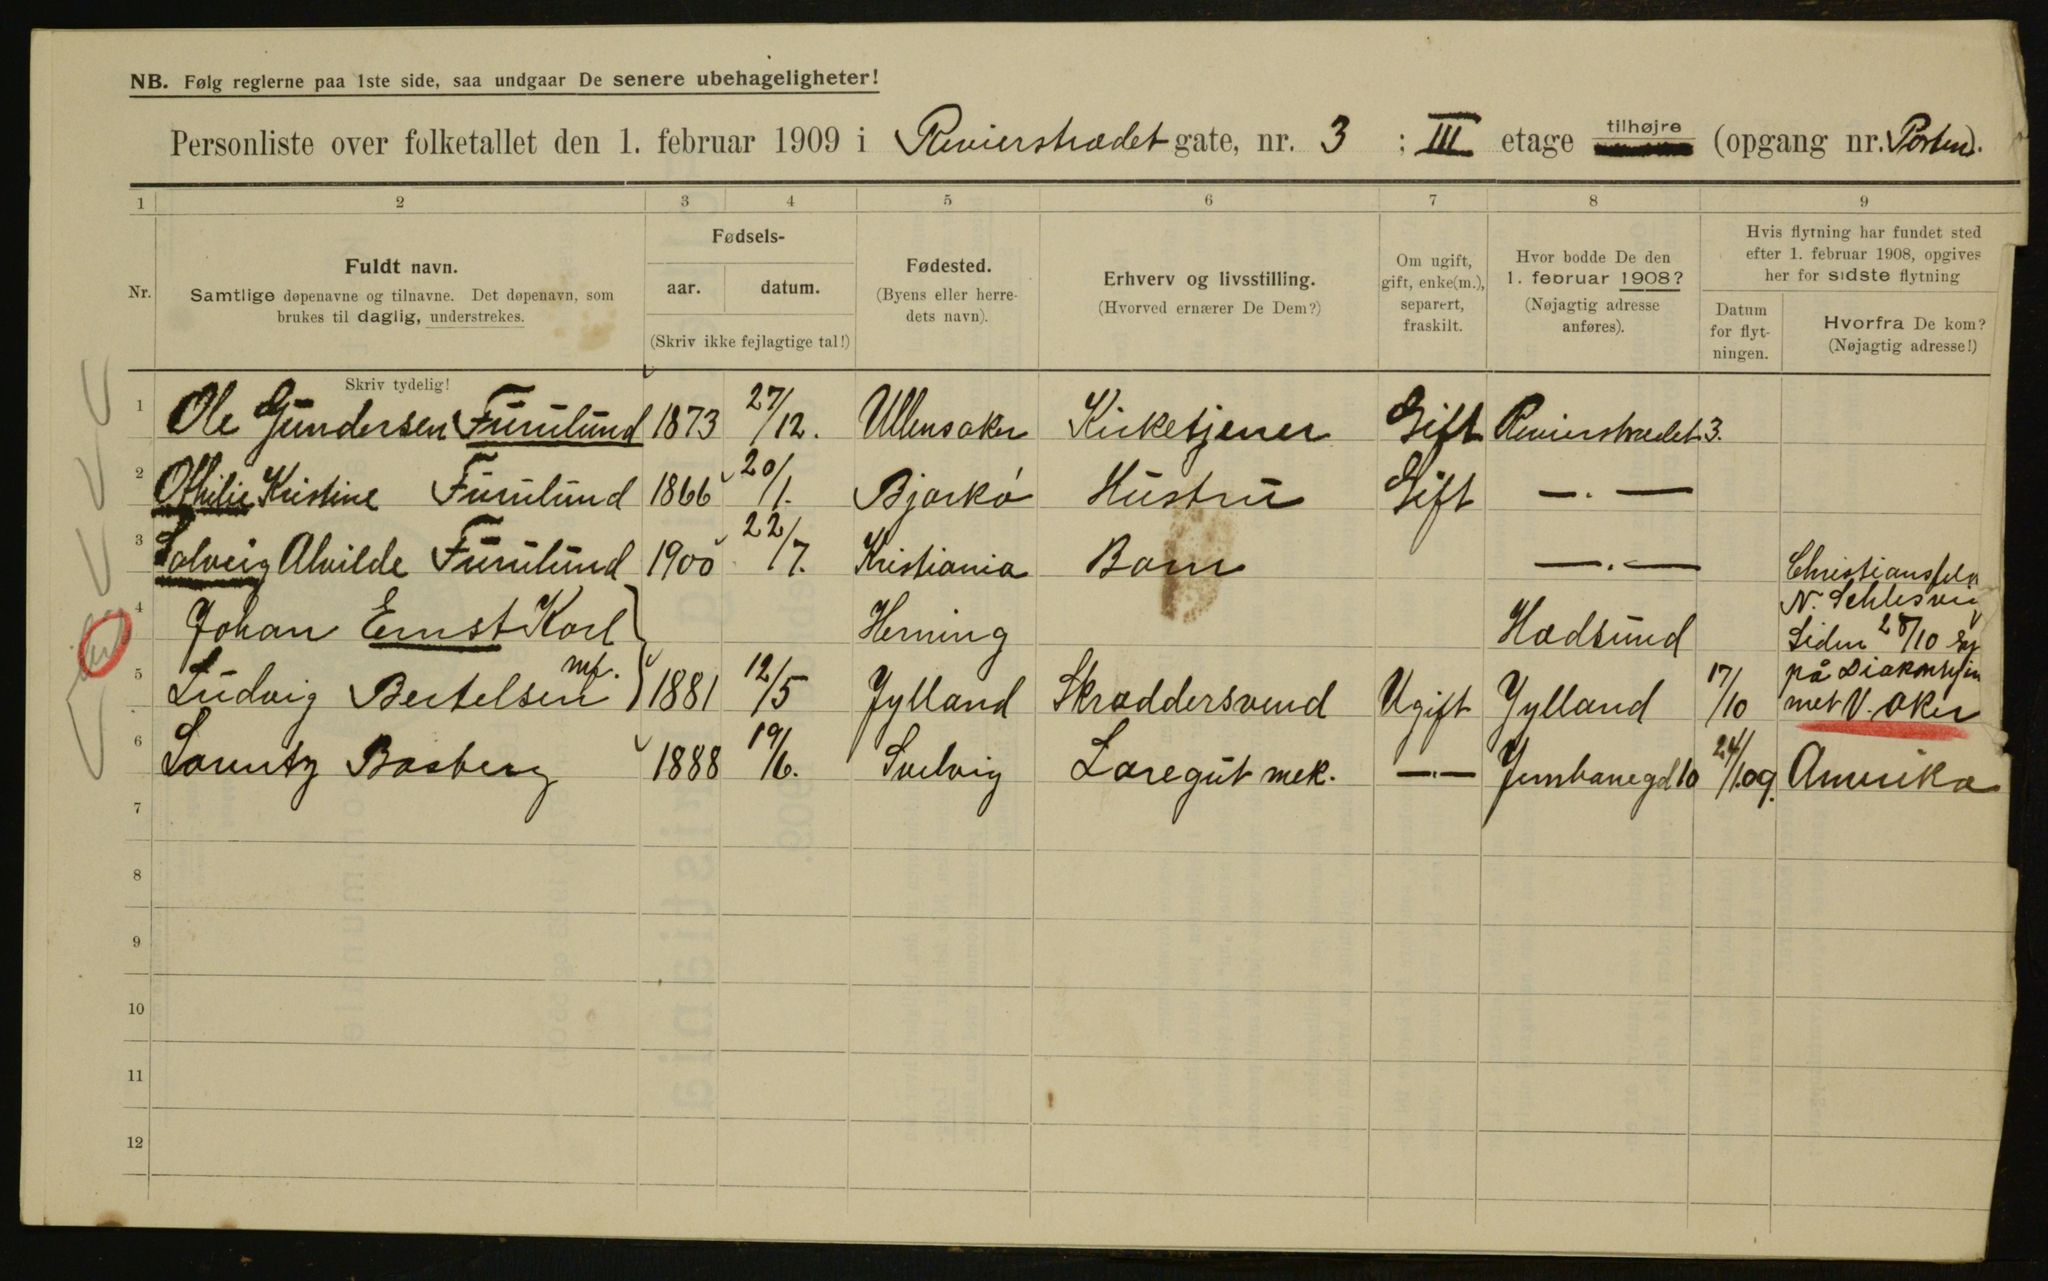 NB. Følg reglerne paa 1ste side, saa undgaar De senere ubehageligheter!
Personliste over folketallet den 1. februar 1909 i Revierstrædet gate, nr. 3 : III etage tilhøjre (opgang nr. Porten).
1 2 3 4 5 6 7 8 9
Nr.
Fuldt navn.
Samtlige døpenavne og tilnavne. Det døpenavn, som
brukes til daglig, understrekes.
Skriv tydelig!
Fødsels-
aar. datum.
(Skriv ikke fejlagtige tal!)
Fødested.
(Byens eller herre-
dets navn).
Erhverv og livsstilling.
(Hvorved ernærer De Dem?)
Om ugift,
gift, enke(m.),
separert,
fraskilt.
Hvor bodde De den
1. februar 1908?
(Nøjagtig adresse
anføres).
Hvis flytning har fundet sted
efter 1. februar 1908, opgives
her for sidste flytning
Datum
for flyt-
ningen.
Hvorfra De kom?
(Nøjagtig adresse!)
1 Ole Gundersen Furulund 1873 27/12. Ullensaker Kirketjener Gift Revierstrædet 3.
2 Othilie Kristine Furulund 1866 20/1. Bjarkø Hustru Gift —.—
3 Solveig Alvilde Furulund 1900 22/7. Kristiania Barn —.—
Christiansfeld
N. Schlesvig
4 Johan Ernst Karl Herning Hadsund Siden 28/10
på
5 Ludvig Bertelsen mf. 1881 12/5 Jylland Skræddersvend Ugift Jylland 17/10 met V. Aker
6 Lauritz Basberg 1888 19/6. Svelvig Læregut mek. —.— Jernbanegd 10 24/1.09. Amerika
7
8
9
10
11
12